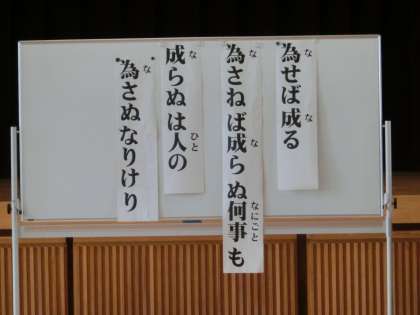 為せば成る
為さねば成らぬ何事も
成らぬは人の
為さぬなりけり